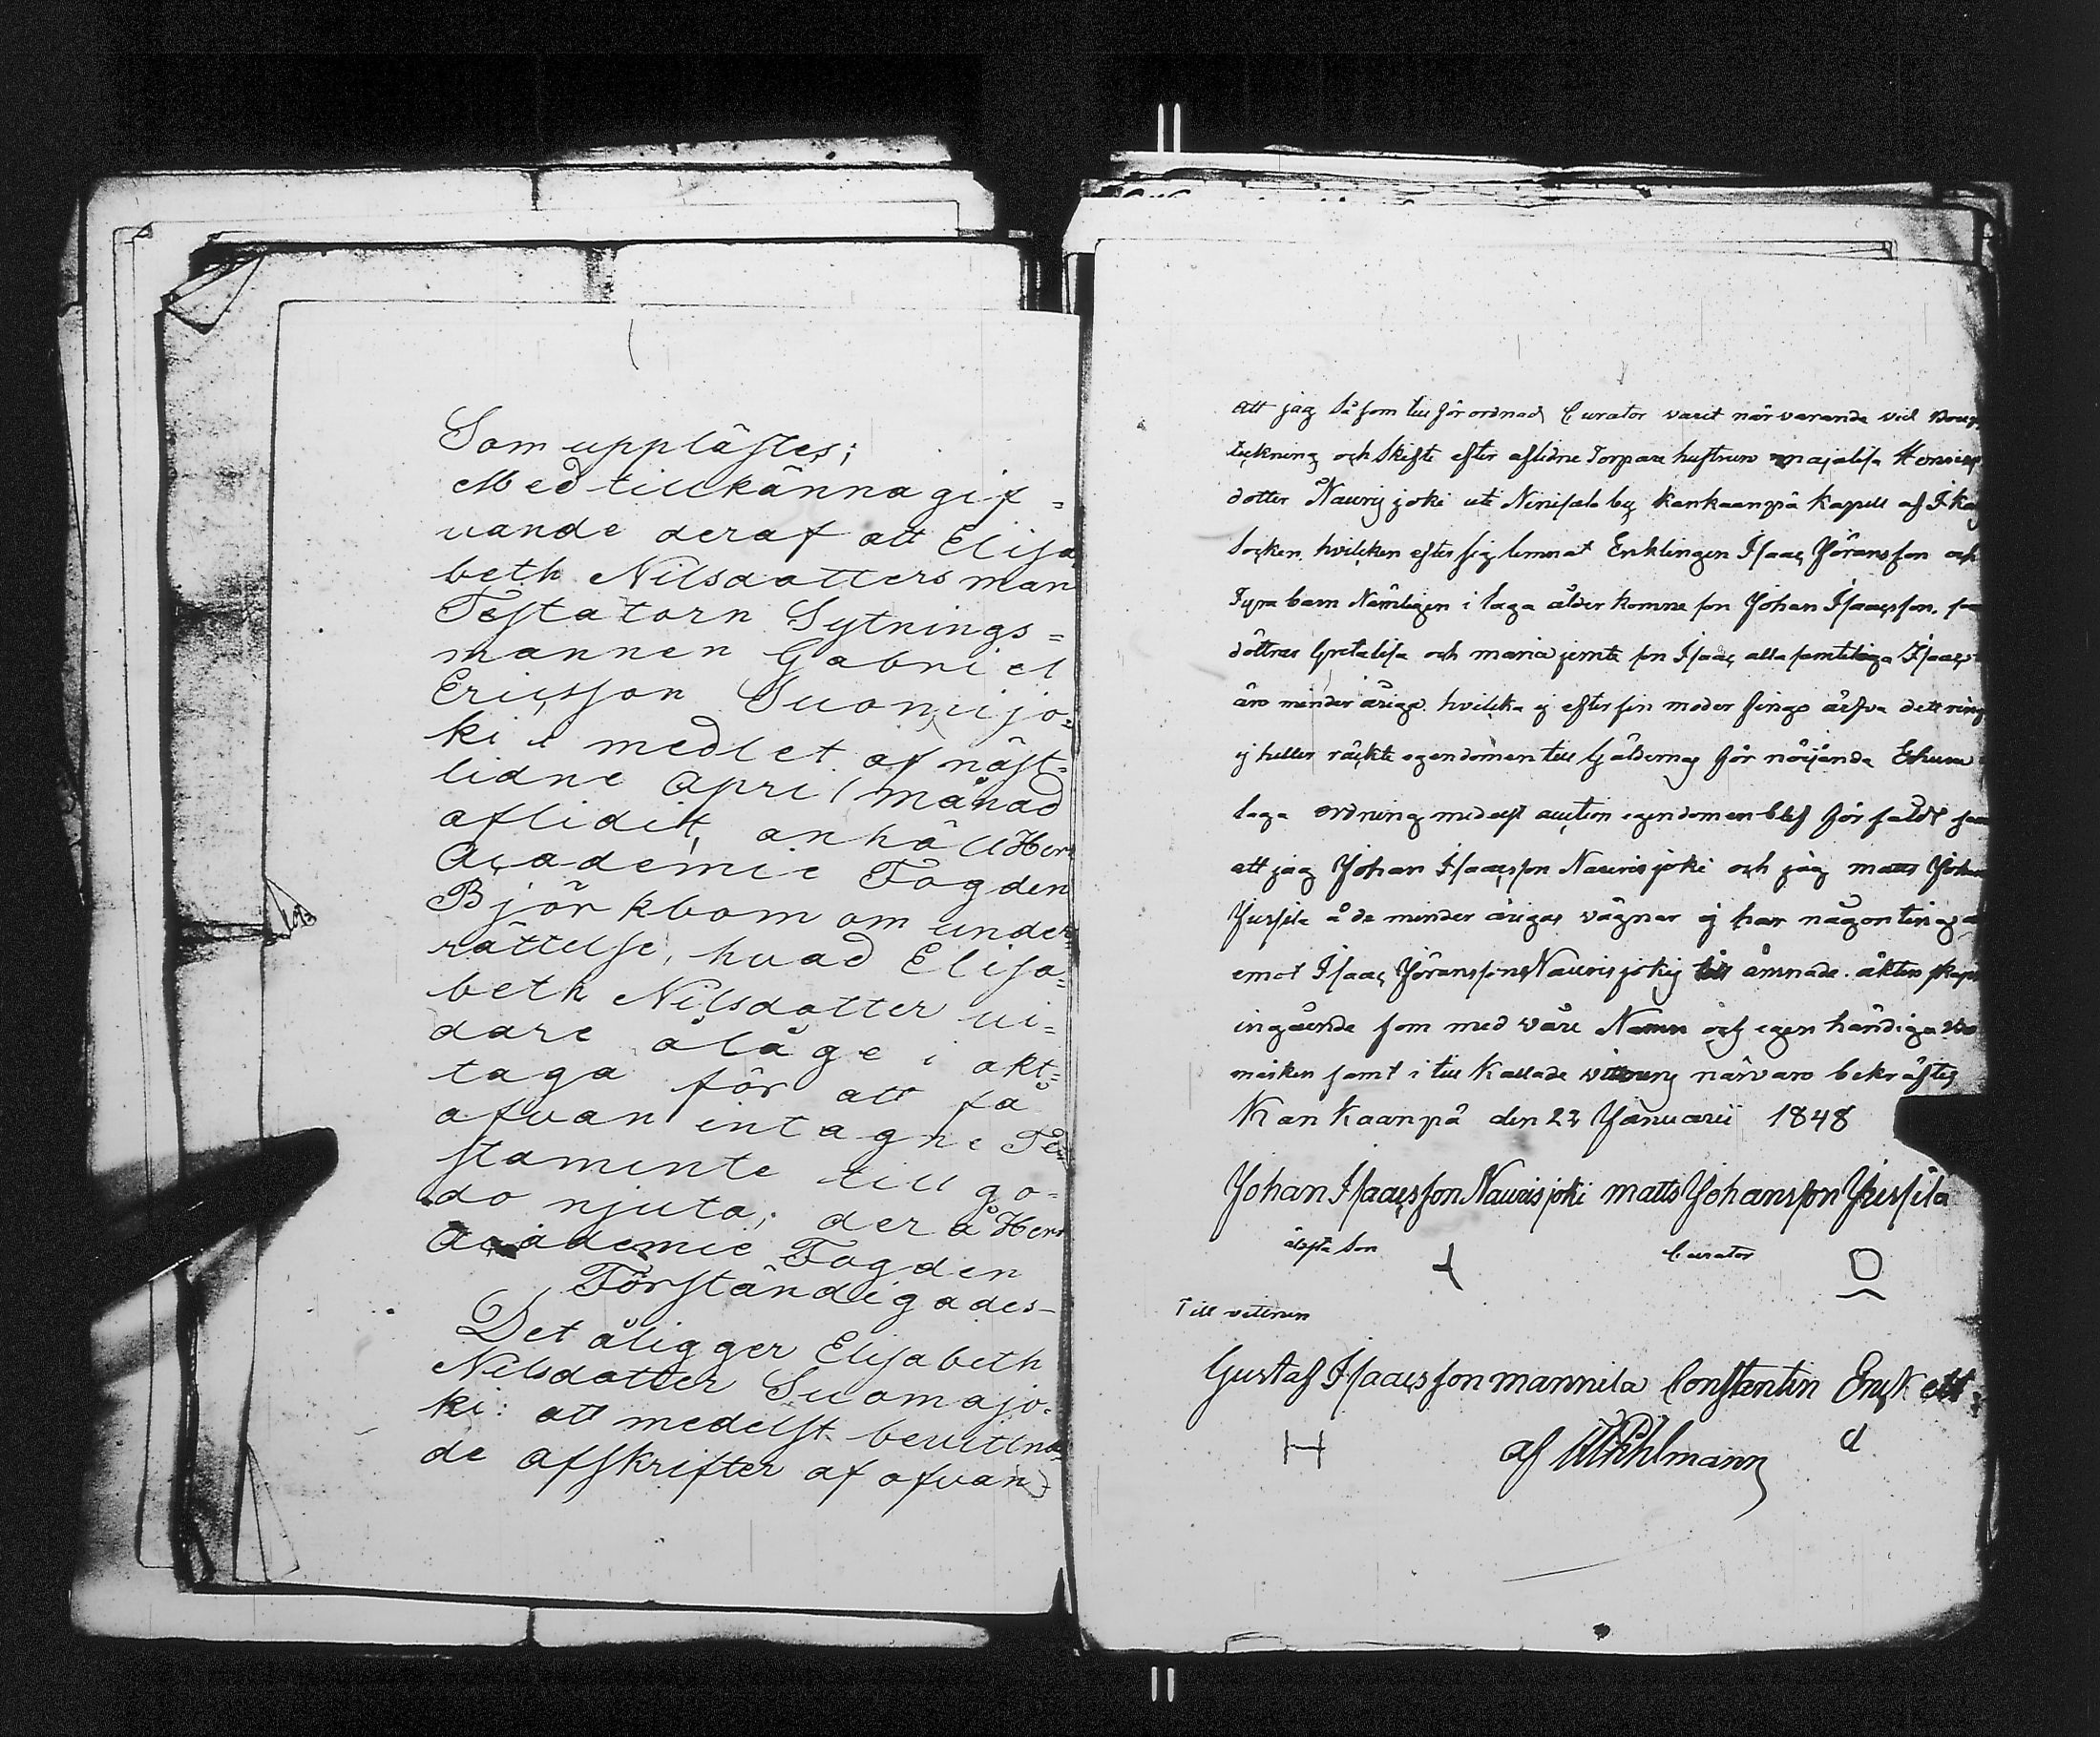 Som upplästes;
Med tillkännagif=
vande deraf att Elisa
beth Nilsdotters man
Testatorn Sytnings=
mannen Gabriel
Ericsson Suomijo=
ki i medlet af näst=
lidne April månad
aflidit, anhöll Herr
Academie Fogden
Björkbom om under=
rättelse, hvad Elisa=
beth Nilsdotter vi=
dare ålåge i akt=
taga för att få
ofvan intagne Te=
stamente till go=
do njuta; der å Herr
Academie Fogden
Förständigades
Det åligger Elisabeth
Nilsdotter Suomajo=
ki: att medelst bevittna
de afskrifter af ofvan
att jag såsom till förordnad Curator varit närvarande vid Boup
tekning och Skifte efter aflidne Torpare hustrun majalisa Henrics
dotter Naurisjoki ute Ninisalo by Kankaanpä Kapell af Ika
Socken. hvilken efter sig lemnat Enklingen Isaac Jöransson och
Fyra barn Nämligen i laga ålder komne son Johan Isaacsson.
döttrar Gretalisa och maria jemte son Isaac alla samteliga Isaacs
äro minder åriga. hvilka ej efter sin moder fingo ärfva dett ring
ej heller räckte egendomen till Gälderna för nöijande Ehuru
laga ordning medelst auction egendomen blef för såldt
att jag Johan Isaacsson Naurisjoki och jag matts Johan
Jussila å de minder årigas vägnar ej har någonting
emot Isaac Jöranssons Naurisjoki till ämnade äktenskaps
ingående som med våre Namn och egen händiga Bo
märken samt i till Kallade vittnens närvaro bekräftes
Kankaanpä den 22 Januarii 1848
Johan Isaacsson Naurisjoki matts Johansson Jussila
älsta Son Curator
Till vittnen
Gustaf Isaacsson mannila Constantin
H af d